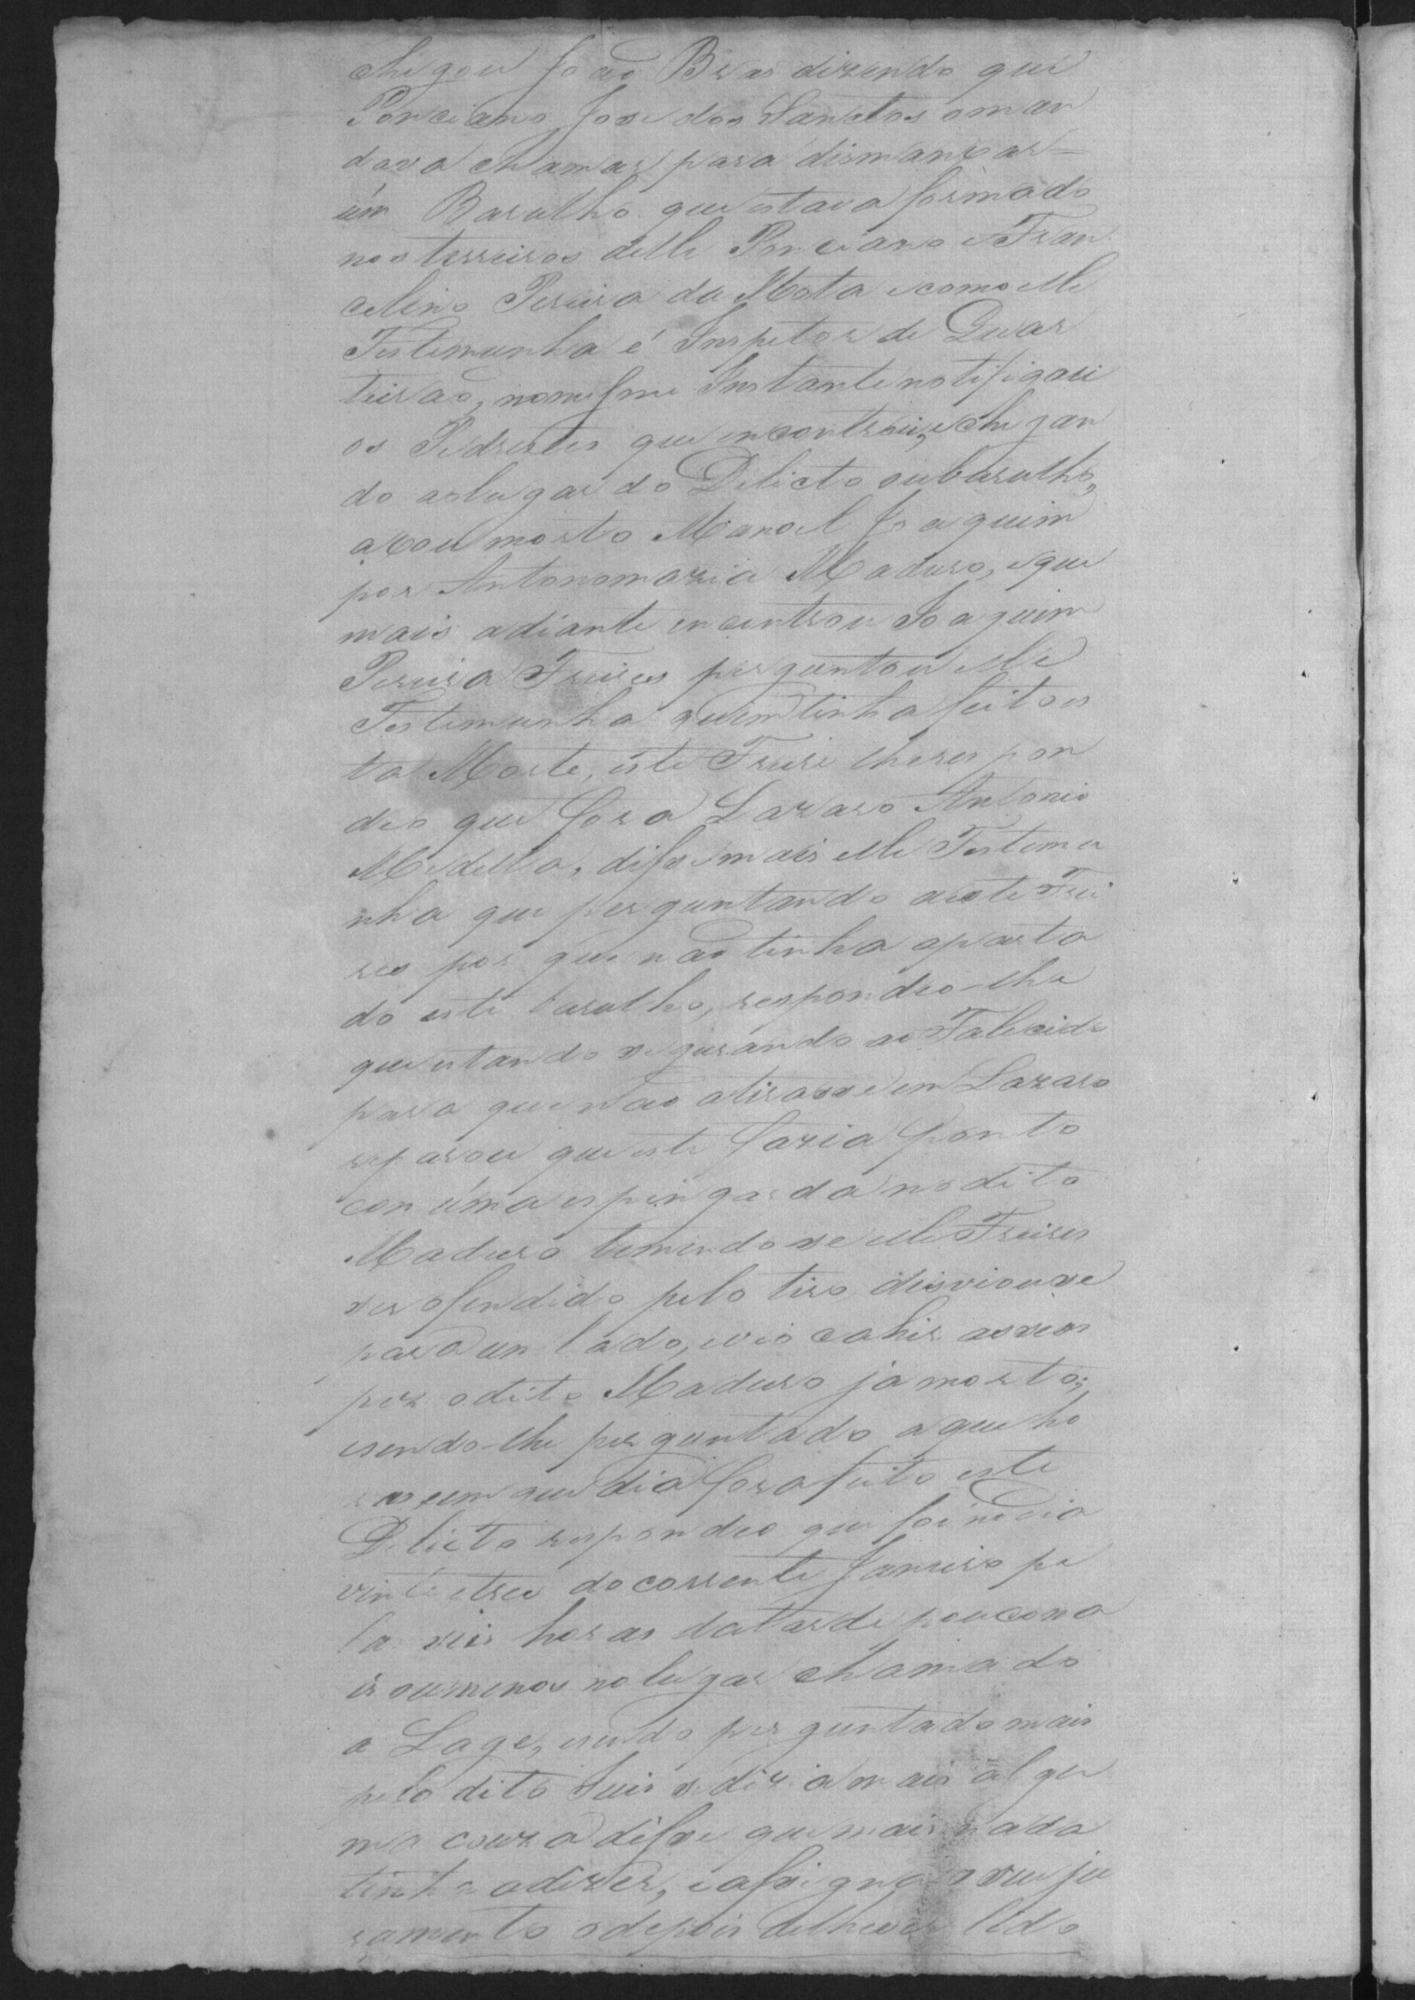 chegou João Bras dizendo que
Ponciano Jose dos Sanctos oman
dava chamar para dismanxar
úm Barulho que estava formado
nos terreiros delle Ponciano e Fran
celino Pereira da Mota ecomo elle
Testemunha é Inspetor de Quar
teirão, nomesmo Instante notifiqari
os Pedrestes que encontrou, echegan
do aolugar do Delicto oubarulho,
axou morto Manoel Joaquim
por Antonomazia Maduro, eque
mais adiante encontrou Joaquim
Pereira Freires perguntou elle
Testemunha quemtinha feito es
ta Morte, este Freire lheres pon
deo que fora Lazaro Antonio
Medella, disse mais elle Testemu
nha que perguntando a este Frei
res por que não tinha aparta
do este barulho, respondeo-lhe
que estando segurando ao Falecido
para que não atirasse em Lazaro
reparou que este fazia ponto
con úma espingarda no dito
Maduro temendo se elle Freires
ser ofendido pelo tiro disviouse
para un lado, evio cahir aos seos
pez odito Maduro já morto;
esendo-lhe perguntado aque ho
ras eem que dia fora feito este
Delicto respondeo que foi nodia
vinte etres docorrente Janeiro pe
la seis horas datarde poucoma
is oumenos nolugar chamado
a Lage, esendo perguntado mais
pelo dito Juis sedizia mais algu
ma couza disse que mais nada
tinha adizer, eassigna oseu ju
ramento odepois delheser lido